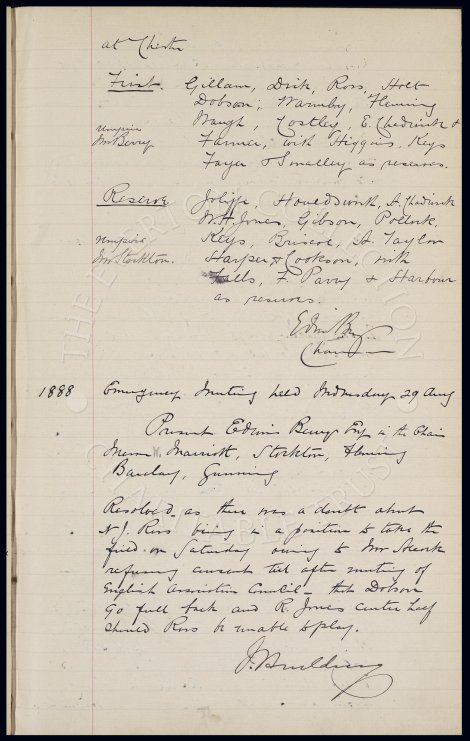 at Chester
First. Gillam, Dick, Ross, Holt
Dobson; Warmby, Fleming
Waugh, Costley, E. Chadwick &
Umpire
Mr Berry
Farmer, with Higgins, Keys
Fayer & Smalley as reserves.
Reserve Joliffe, Houldsworth, A. Chadwick
W. H. Jones, Gibson, Pollock,
Umpire
Mr Stockton.
Keys, Briscoe, A. Taylor
Harper & Cookson, with
Falls, F. Parry & Harbour
as reserves.
Edwin Berry
Chairman
1888 Emergency Meeting held Wednesday 29 Aug
Present Edwin Berry Esq in the Chair
Messrs W. Marriott, Stockton, Fleming
Barclay, Gunning
Resolved - as there was a doubt about
N. J. Ross being in a position to take the
field on Saturday owing to Mr
refusing consent till after meeting of
English Association Council - that Dobson
go full back and R. Jones centre half
should Ross be unable to play.
THE EVERTON COLLECTION
CHARITABLE TRUST